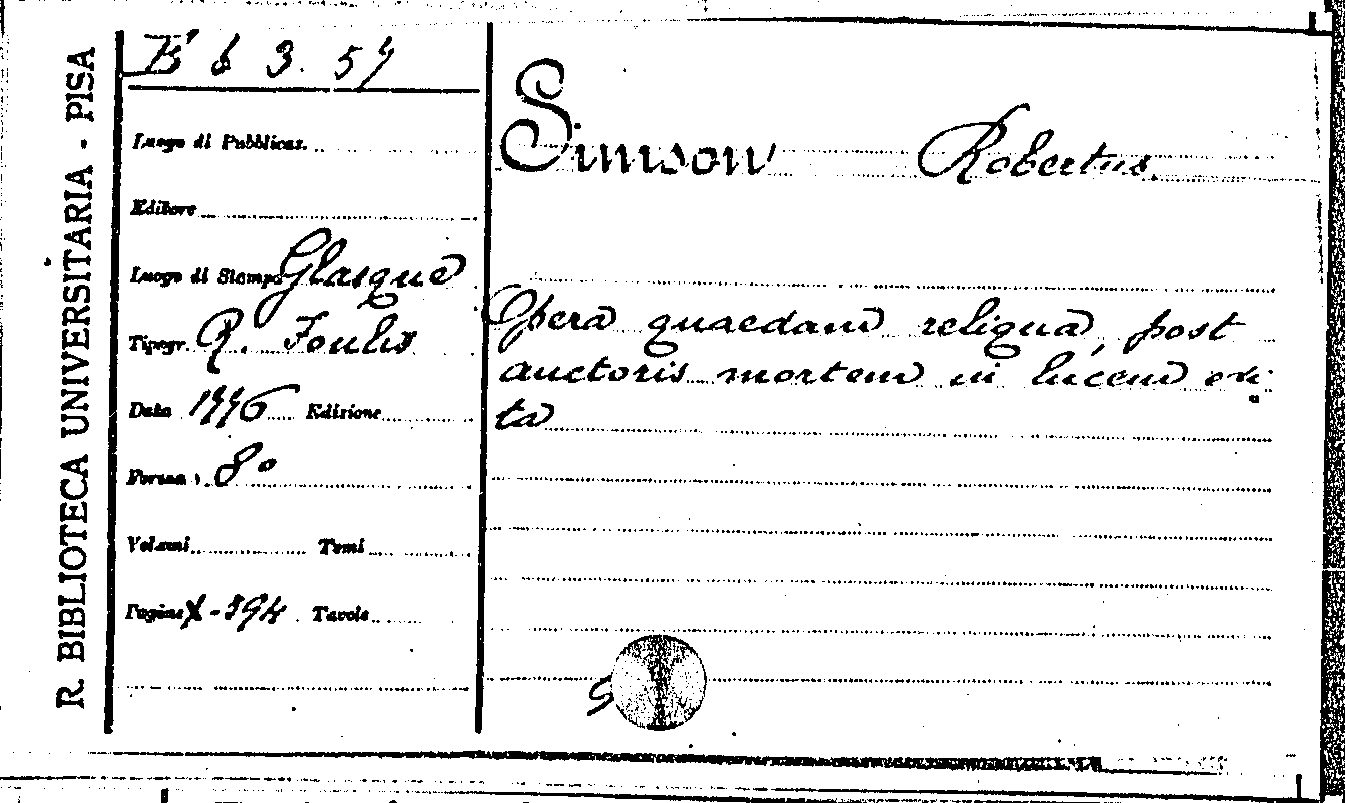 R. BIBLIOTECA UNIVERSITARIA - PISA
B' b 3. 57
Luogo di Pubblicaz.
Editore
Luogo di Stampa Glasguae
Tipogr. R. Foulis
Data 1776 Edizione
Forma 8°
Volumi Tomi
Pagine X-594 Tavole
Simson Robertus.
Opera quaedam reliqua, post
auctoris mortem in lucem edi-
ta